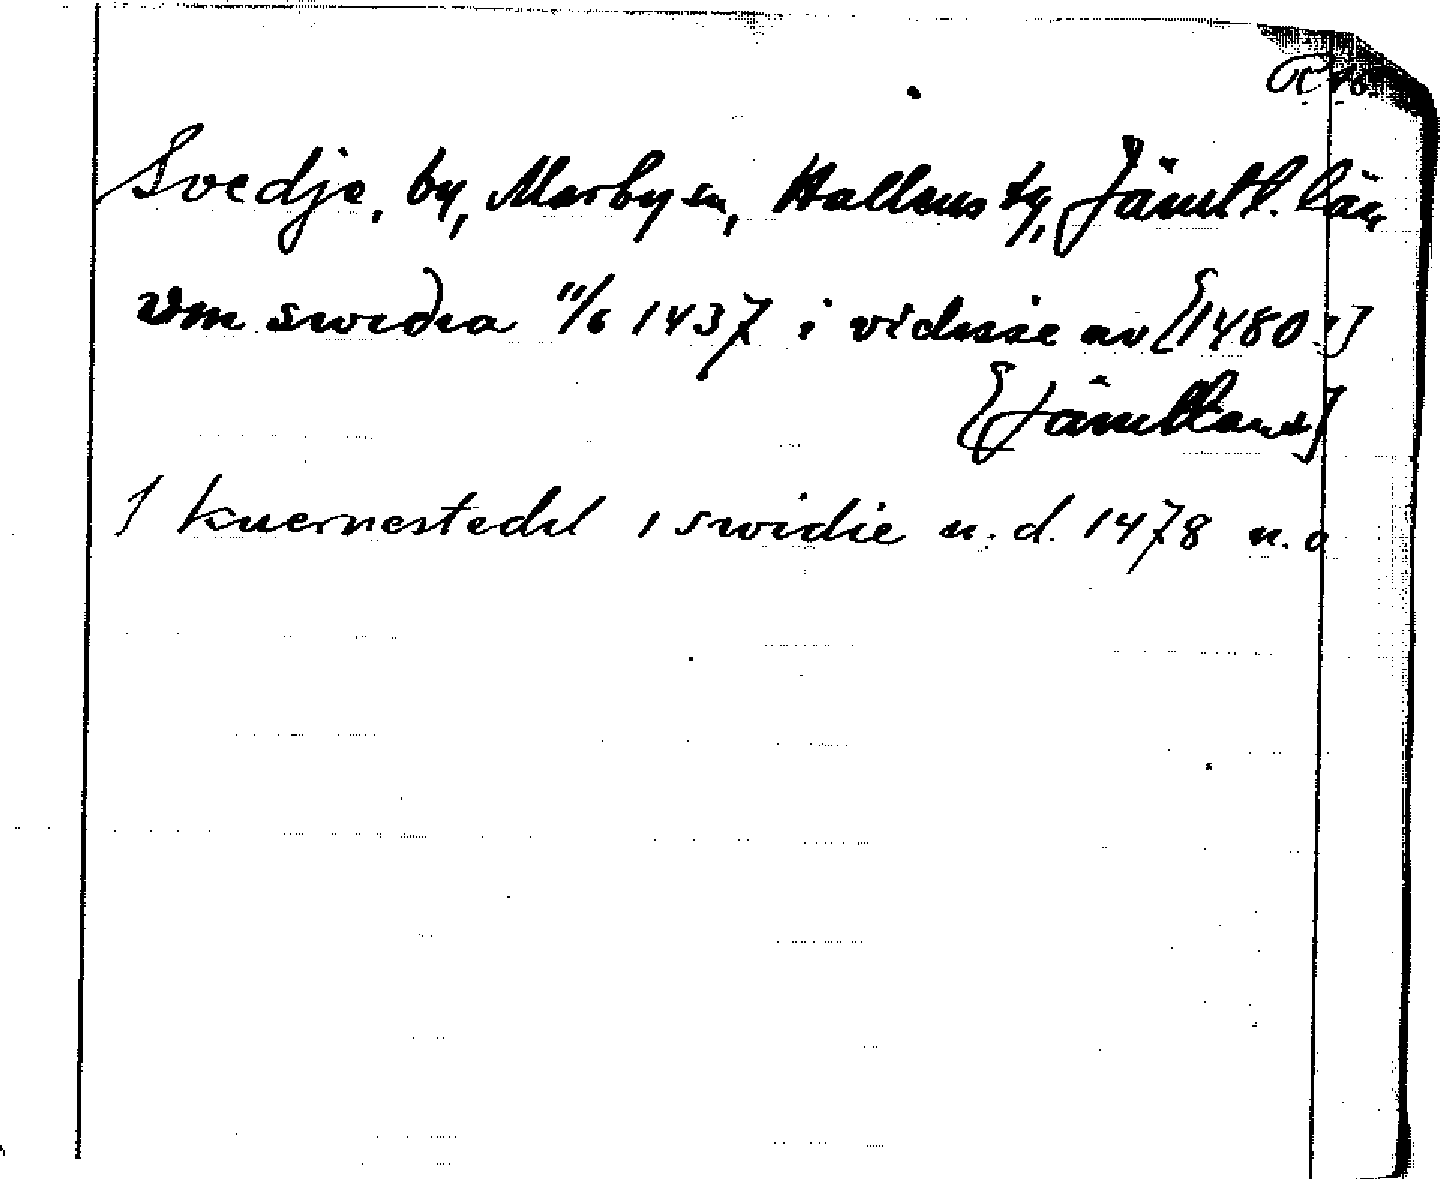 Svedje, by, Marby sn, Hallens tg, Jämtl. län
vm swedia 11/6 1437 i vidisse av [1480 ?]
[Jämtland]
1 kuernestedil i swidie u. d. 1478 u. o